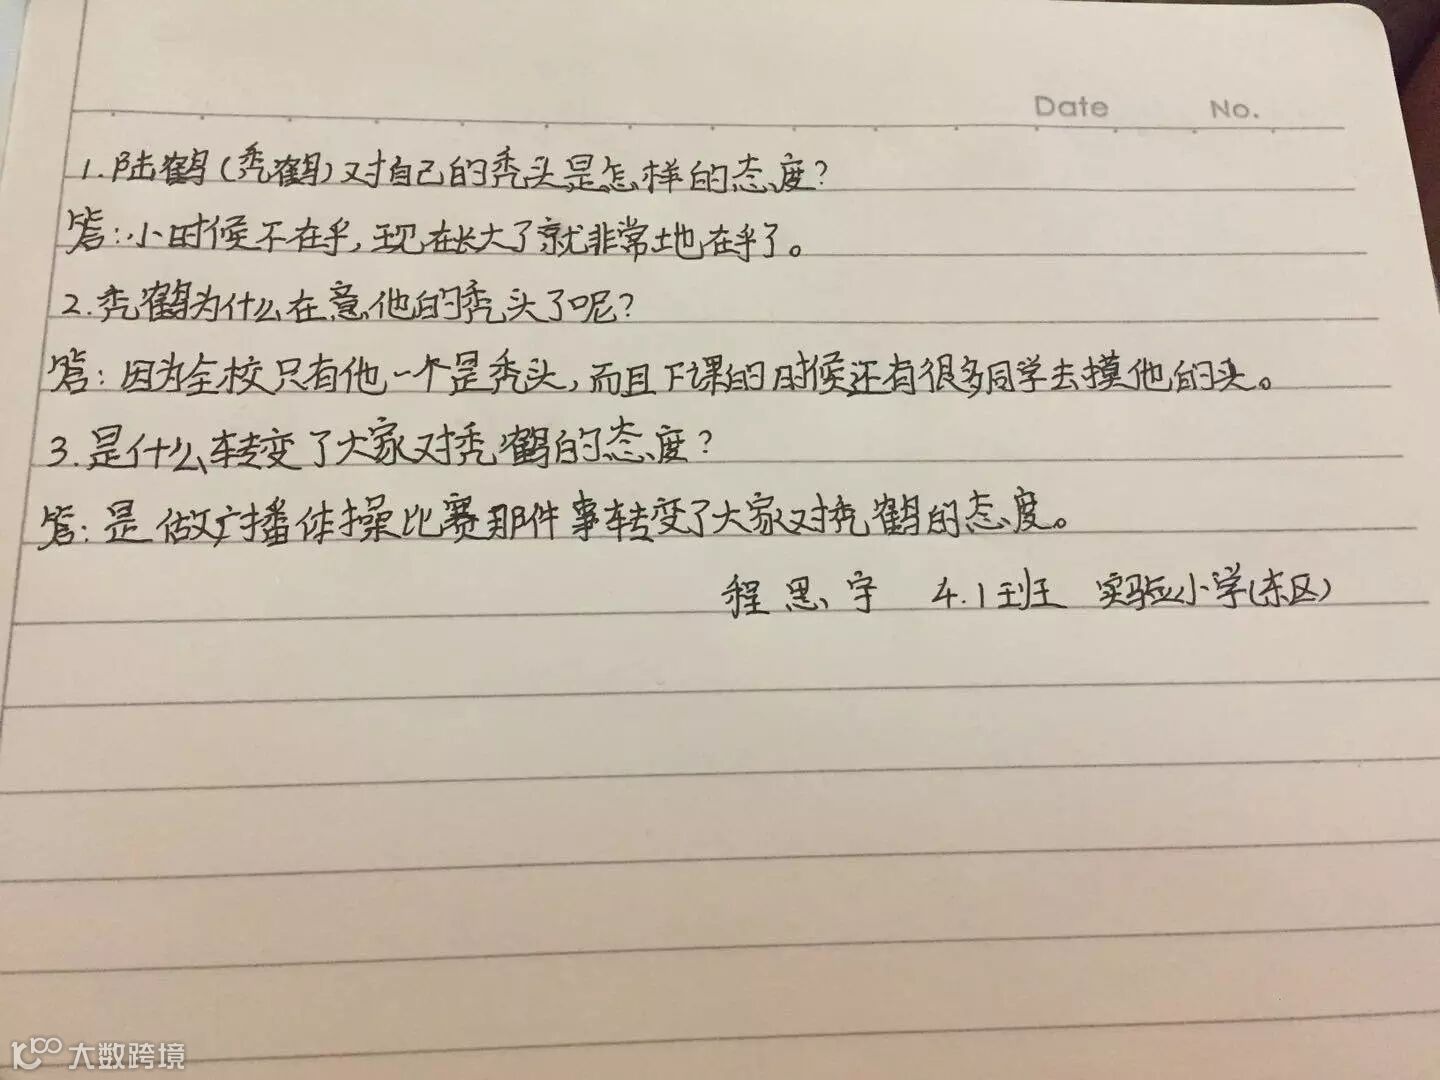 Date No.
1.陆鹤(秃鹤)对自己的秃头是怎样的态度?
答:小时候不在乎,现在长大了就非常地在乎了。
2.秃鹤为什么在意他的秃头了呢?
答:因为全校只有他一个是秃头,而且下课的时候还有很多同学去摸他的头。
3.是什么转变了大家对秃鹤的态度?
答:是做广播体操比赛那件事转变了大家对秃鹤的态度。
程思宇 4.1班 实验小学(东区)
大数跨境